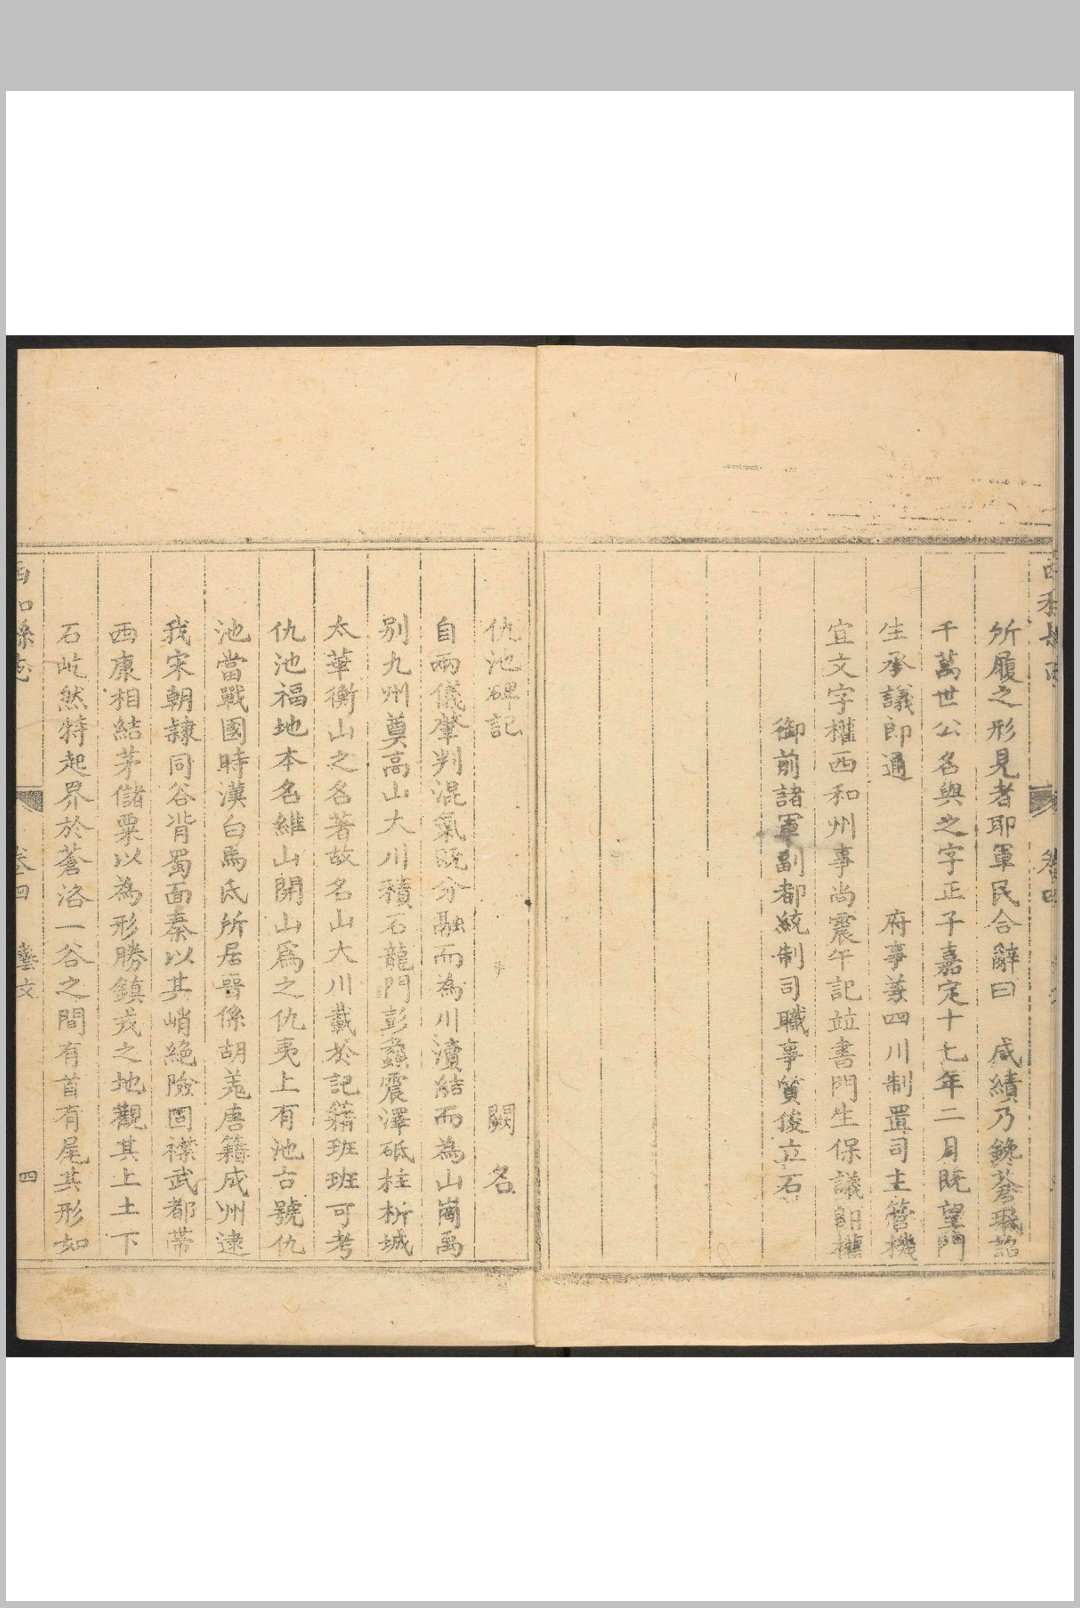 西和縣志 卷四
所履之形見者耶軍民合辭曰 咸績乃鑱蒼珉詔
千萬世公名與之字正子嘉定十七年二月既望門
生承議郎通 府事兼四川制置司主管機
宜文字權西和州事尚震午記竝書門生保議郎權
御前諸軍副都統制司職事質俊立石
仇池碑記 闕名
自兩儀肇判混氣既分融而為川瀆結而為山崗禹
別九州奠高山大川積石龍門彭蠡震澤砥柱析城
太華衡山之名著故名山大川載於記籍班班可考
仇池福地本名維山開山爲之仇夷上有池古號仇
池當戰國時漢白馬氐所居晉係胡羗唐籍成州逮
我宋朝隷同谷背蜀面秦以其峭絕險固襟武都帶
西康相結茅儲粟以為形勝鎮戎之地觀其上土下
石屹然特起界於蒼洛一谷之間有首有尾其形如
西和縣志 卷四 藝文 四